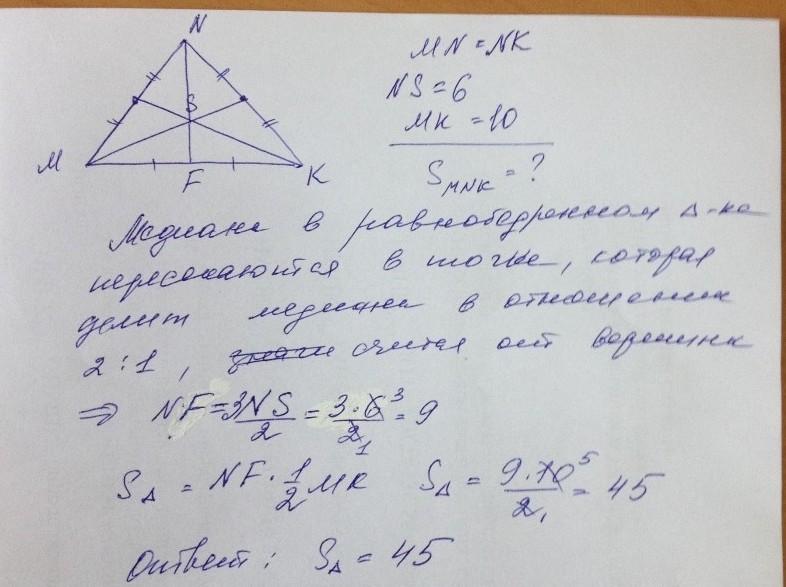 N
S
M
F
K
MN = NK
NS = 6
MK = 10
S MNK = ?
Медианы в равнобедренном Δ-ке
пересекаются в точке, которая
делит медианы в отношении
2:1, считая от вершины
⇒ NF = 3NS/2 = 3·6/2 = 9
S Δ = NF · 1/2 MK S Δ = 9·10/2 = 45
Ответ: S Δ = 45